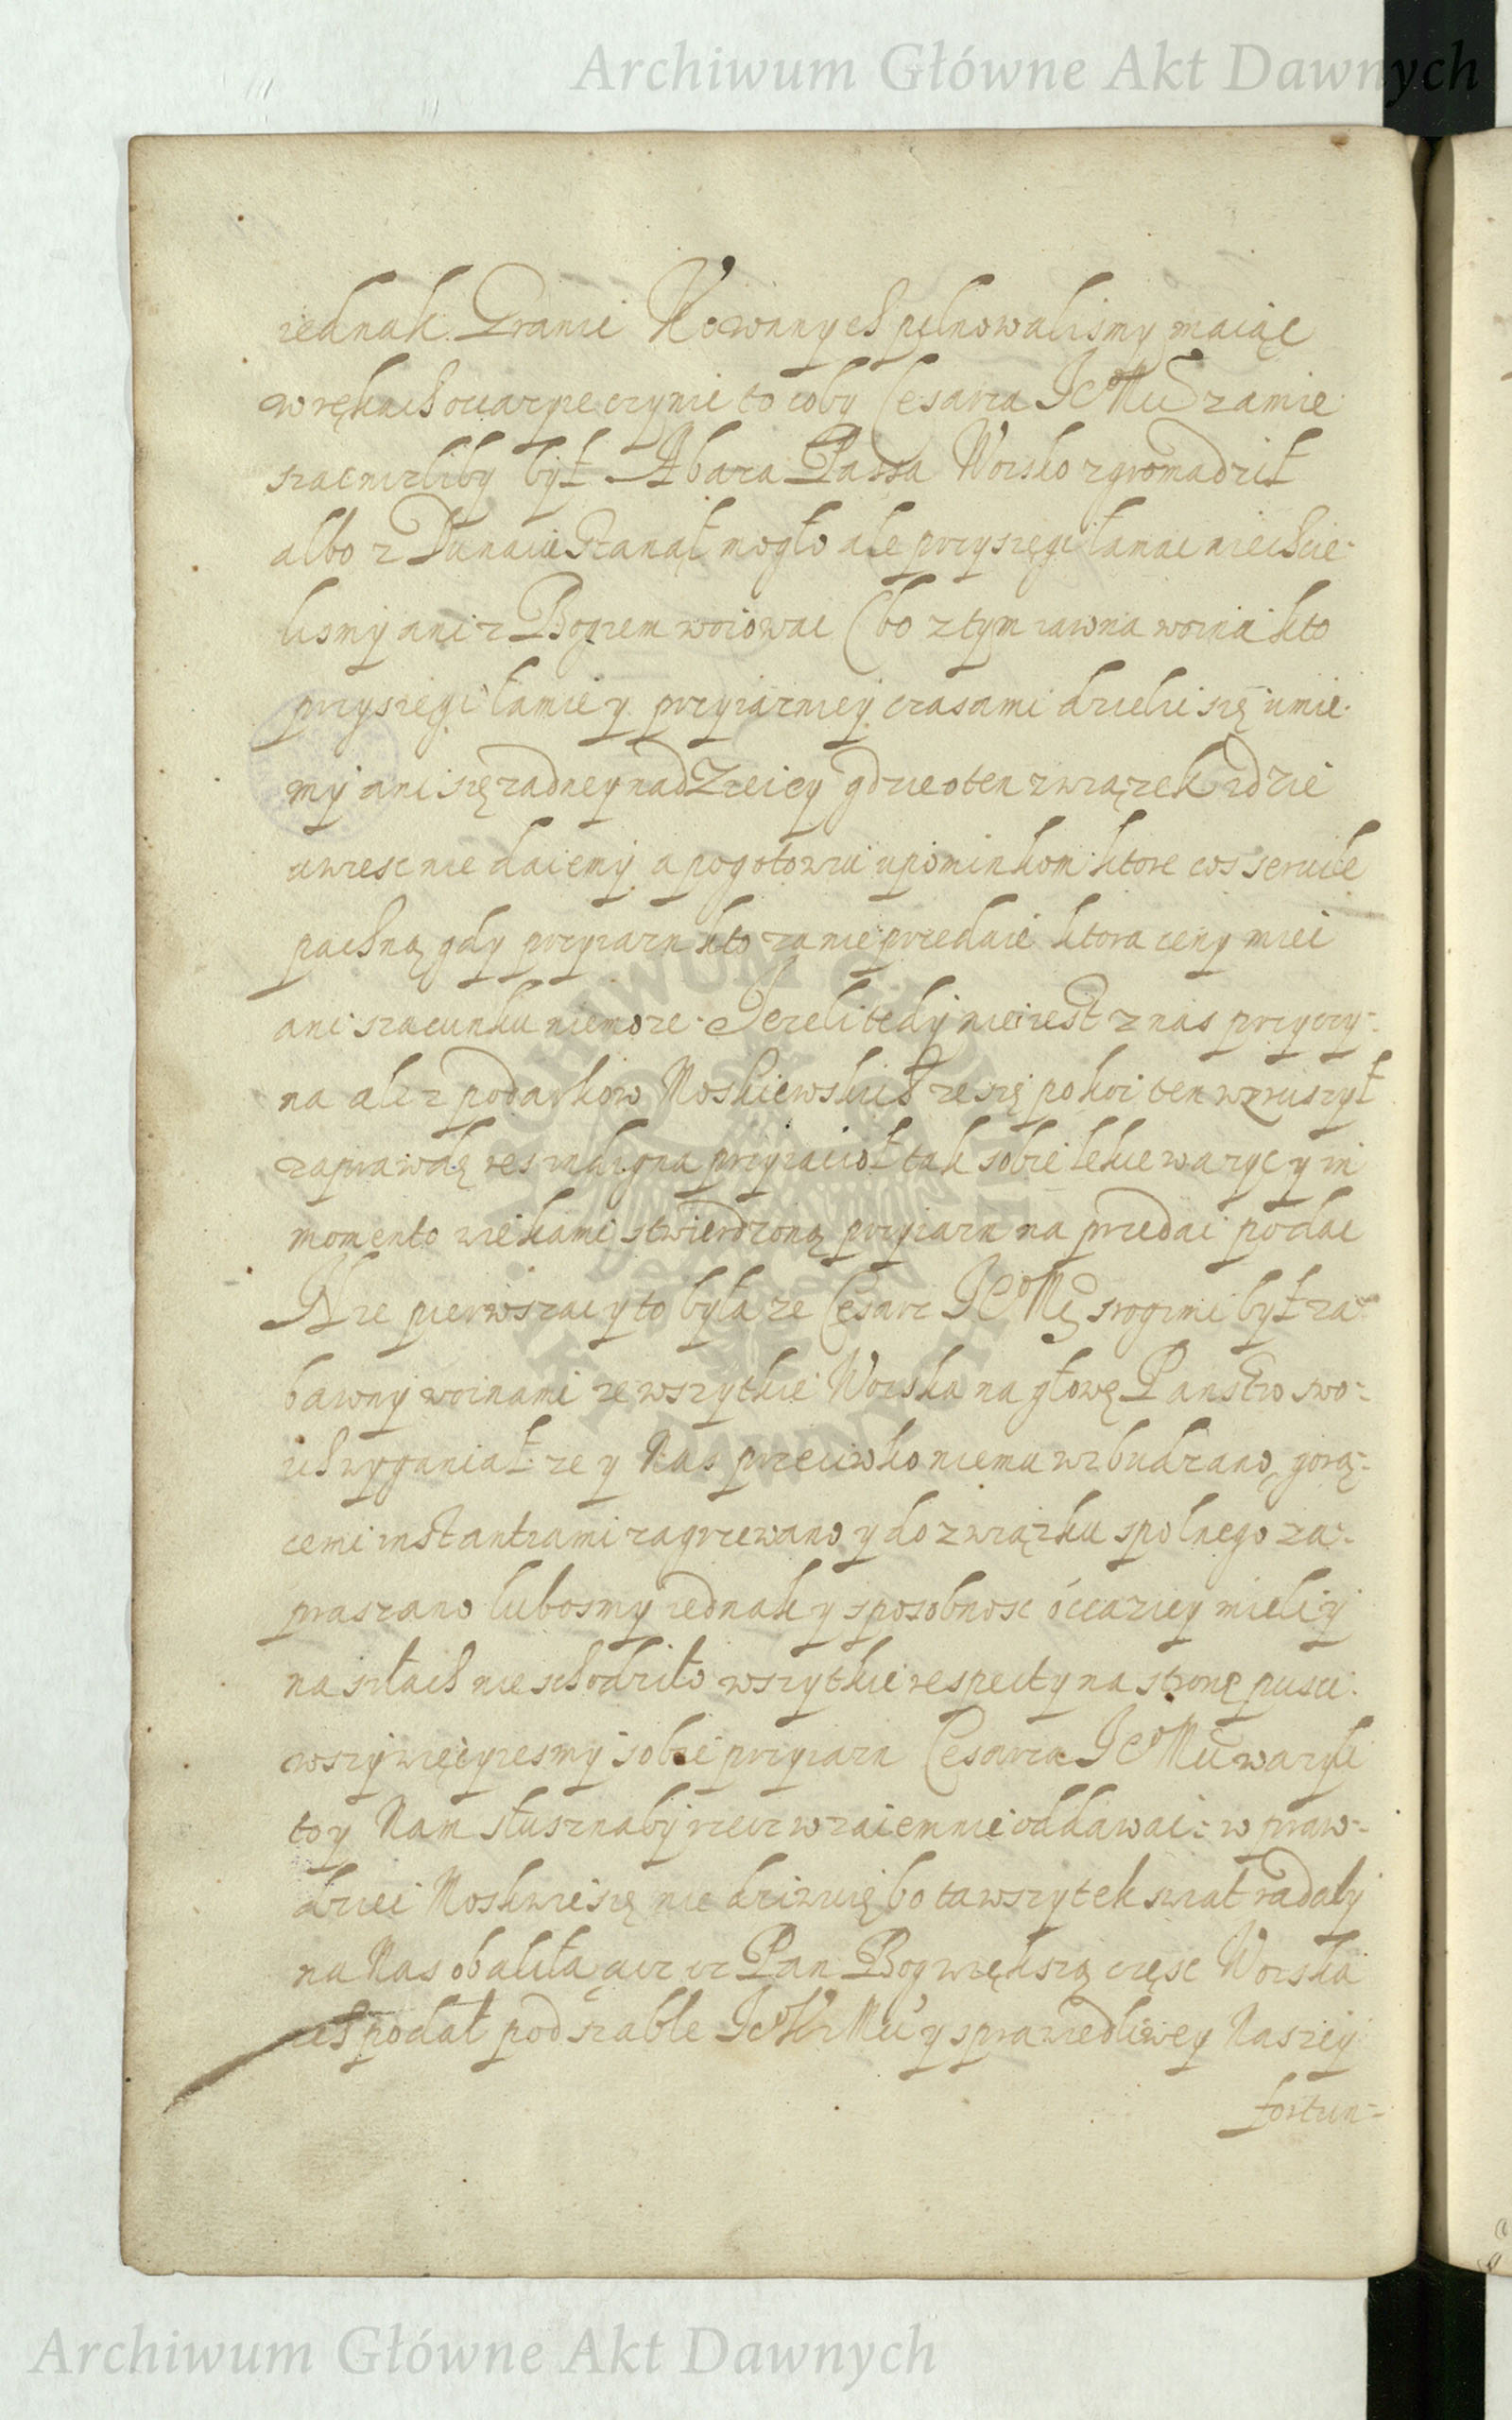 Archiwum Główne Akt Dawnych
iednak Granic Nowinnych pilnowalismy maiąc
w rękach occazye czynić to coby Cesarza JeoMci zamie
szać niżliby był Abaza Passa Woisko zgromadził
albo z Dunaiu stanąć mogło ale przysięgi łamać niechcie-
lismy ani z Bogiem woiować (bo z tym iawna woina kto
przysięgi łamie y przyiazniey czasami dzielić się umie-
my ani się zadney nadzieicy gdzie o ten związek idzie
uwiesć nie daiemy a pogotowiu upominkom ktore cos servile
pachną gdy przyiazn kto za nie przedaie ktora ceny mieć
ani szacunku niemoże. Jezeli tedy nie iest z nas przyczy-
na ale z podarkow Moskiewskich ze się pokoi ten wzruszył
zaprawdę res indigna przyiacioł tak sobie lekce ważyć y in
momento wiekami stwierdzoną przyiazn na przedai podać
Nie pierwsza czy to była ze Cesarz JeoMć srogimi był za-
bawny woinami ze wszytkie Woiska na głowę Panstw swo-
ich wyganiał ze y Nas przeciwko niemu wzbudzano, gorą-
cemi instantiami zagrzewano, y do związku spolnego za-
praszano lubosmy iednak y sposobnosc occaziey mieli y
na siłach nie schodziło wszytkie respecty na stronę pusci-
wszy więcyesmy sobie przyiazn Cesarza JeoMci wazyli
to y Nam słusznaby rzecz wzaiemnie oddawać: w praw-
dzie Moskwie się nie dziwuię bo ta wszytek swiat radaby
na Nas obaliła, gdyż Pan Bog większą częsc Woiska
ich podał pod szable JeoKrMci y sprawiedliwey Naszey
fortun-
Archiwum Główne Akt Dawnych